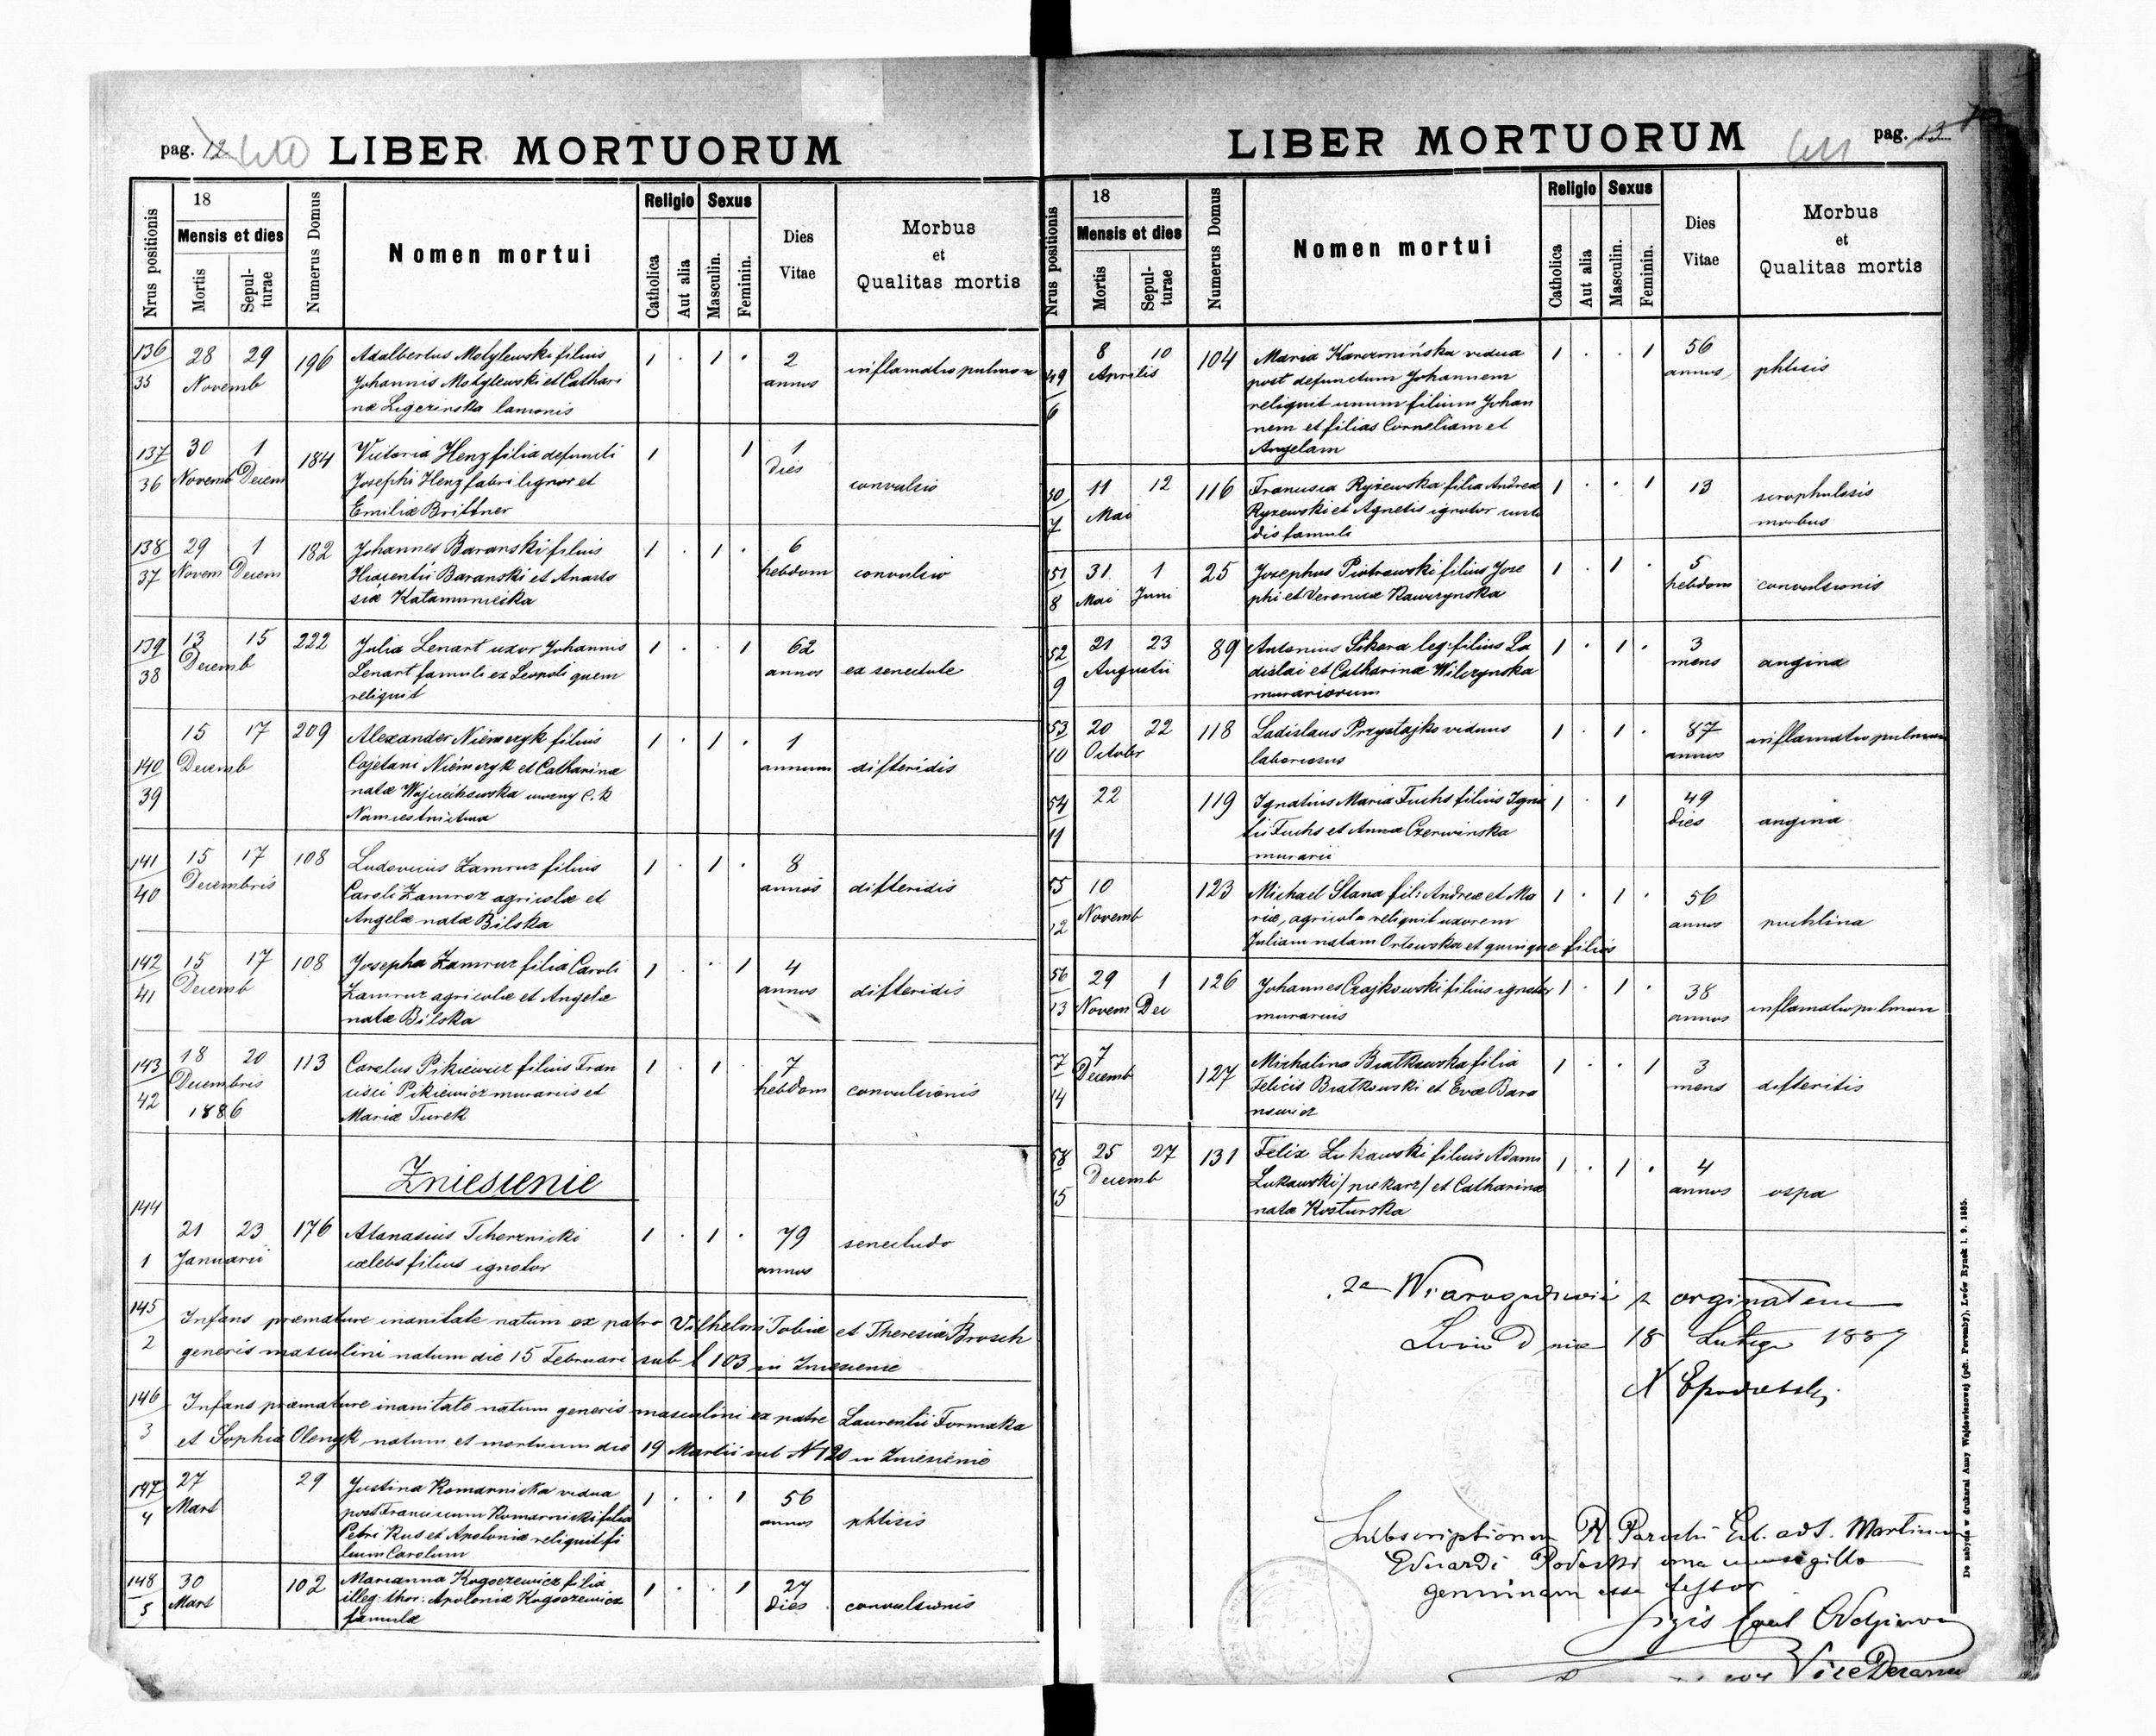 pag. 12
LIBER MORTUORUM
Nrus positionis
18
Mensis et dies
Mortis
Sepul-
turae
Numerus Domus
Nomen mortui
Religio
Catholica
Aut alia
Sexus
Masculin.
Feminin.
Dies
Vitae
Morbus
et
Qualitas mortis
136 28 29 196 Adalbertus Motylewski filius 1 . 1 . 2 inflamatio pulmon
35 Novemb Johannis Motylewski et Cathari annos
næ Ligezinska lanionis
137 30 1 184 Victoria Henz filia defuncti 1 1 1
36 Novemb Decem Josephi Henz fabri lignor et dies convulsio
Emiliæ Brittner
138 29 1 182 Johannes Baranski filius 1 . 1 . 6
37 Novem Decem Hiacentii Baranski et Anasta hebdom convulsio
siæ Katamunicska
139 13 15 222 Julia Lenart uxor Johannis 1 . . 1 62
38 Decemb Lenart famuli ex Leopoli quem annos ex senectute
reliquit
15 17 209 Alexander Niemczyk filius 1 . 1 . 1
140 Decemb Cajetani Niemczyk et Catharinæ annum difteridis
39 natæ Wojciechowska woźny C. k
Namiestnictwa
141 15 17 108 Ludovicus Zamroz filius 1 . 1 . 8
40 Decembris Caroli Zamroz agricolæ et annos difteridis
Angelæ natæ Bilska
142 15 17 108 Josepha Zamroz filia Caroli 1 . . 1 4
41 Decemb Zamroz agricolæ et Angelæ annos difteridis
natæ Bilska
143 18 20 113 Carolus Pikiewicz filius Fran 1 . 1 . 7
42 Decembris cisci Pikiewicz murarius et hebdom convulsionis
1886 Mariæ Turek
Zniesienie
144
21 23 176 Atanasius Tcherznicki 1 . 1 . 79 senectudo
1 Januarii cælebs filius ignotor annos
145 Infans præmature inanitate natum ex patre Vilhelmi Tobiæ et Theresiæ Brosch
2 generis masculini natum die 15 Februari sub l 103 in Zniesienie
146 Infans præmature inanitate natum generis masculini ex patre Laurentii Formaka
3 et Sophiæ Olenyk, natum et mortuum die 19 Martii sub N 120 in Zniesienie
147 27 29 Justina Komarnicka vidua 1 . . 1 56
4 Mart post Franciscum Komarnicki filia annos phtisis
Petri Kus et Apoloniæ reliquit fi
lium Carolum
148 30 102 Marianna Rogoszewicz filia 1 . . 1 27
5 Mart illeg. thor: Apoloniæ Rogoszewicz dies convulsionis
famulæ
LIBER MORTUORUM
pag. 13
Nrus positionis
18
Mensis et dies
Mortis
Sepul-
turae
Numerus Domus
Nomen mortui
Religio
Catholica
Aut alia
Sexus
Masculin.
Feminin.
Dies
Vitae
Morbus
et
Qualitas mortis
49 8 10 104 Maria Karczmińska vidua 1 . . 1 56
6 Aprilis post defunctum Johannem annos phtisis
reliquit unum filium Johan
nem et filias Corneliam et
Angelam
50 11 12 116 Francisca Ryżewska filia Andreæ 1 . . 1 13 scrophulosis
7 Mai Ryzewski et Agnetis ignotor custo morbus
dis famuli
51 31 1 25 Josephus Piotrowski filius Jose 1 . 1 . 5
8 Mai Juni phi et Veronicæ Kawczynska hebdom convulsionis
52 21 23 89 Antonius Sikora leg: filius La 1 . 1 . 3
9 Augustii dislai et Catharinæ Wilczynska mens angina
murariorum
53 20 22 118 Ladislaus Przystajko viduus 1 . 1 . 87 inflamatio pulmon
10 Octobr laboriosus annos
54 22 119 Ignatius Maria Fuchs filius Igna 1 . 1 49
11 tii Fuchs et Annæ Czerwinska dies angina
murarii
55 10 123 Michael Stana fil: Andreæ et Ma 1 . 1 . 56
12 Novemb riæ, agricola reliquit uxorem annos puchlina
Juliam natam Orlowska et quinque filios
56 29 1 126 Johannes Czajkowski filius ignotor 1 . 1 . 38
13 Novem Dec murarius annos inflamatio pulmon
57 7 127 Michalina Bratkowska filia 1 . . 1 3
14 Decemb Felicis Bratkowski et Evæ Bara mens difteritis
nowicz
58 25 27 131 Felix Lukawski filius Adami 1 . 1 . 4
15 Decemb Lukawski /piekarz/ et Catharinæ annos ospa
natæ Kosturska
Za
Lwów D nia 18 Lutego 1887
Subscriptionem R. Parochi Ecl. ad S. Martinum
Eduardi Podolski una cum sigillo
genuinam esse testor
Vice Decanus
De nabycia w drukarni Anny Wajdowiczowej (pdt. Poremby), Lwów Rynek l. 9. 1885.